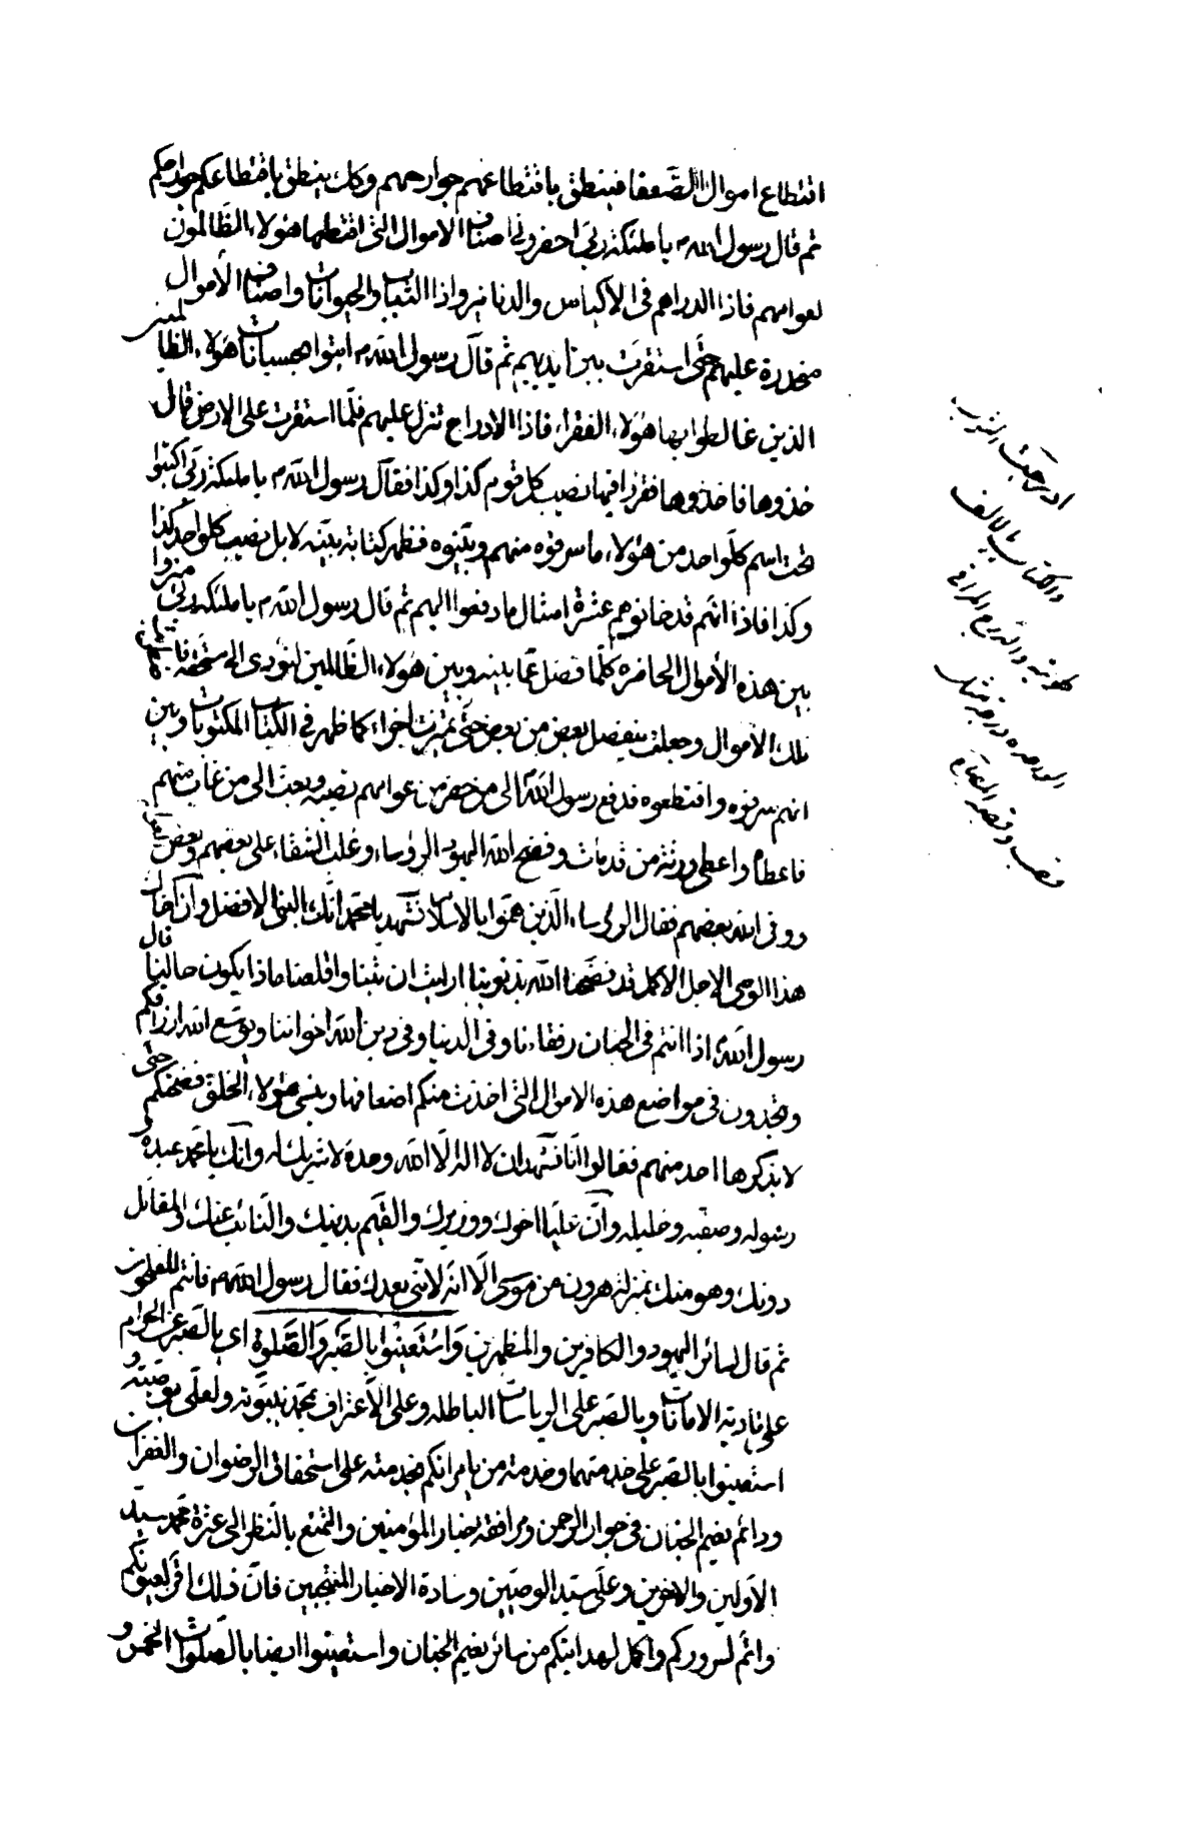 اقتطاع اموال الضعفا فينطق باقتطاعهم جوارحهم وكك ينطق باقتطاعكم جوارحكم
ثم قال رسول الله م يا ملئكة ربى احضرونى اصناف الاموال التى اقتطعها هؤلاء الظالمون
لعوامهم فاذا الدراهم فى الاكياس والدنانير واذا الثياب والحيوانات واصناف الأموال
منحدرة عليهم حتى استقرت بين ايديهم ثم قال رسول الله م ائتوا بحسبانات هؤلاء الظالمين
الذين غالطوا بها هؤلاء الفقراء فاذا الادراج تنزل عليهم فلما استقرت على الارض قال
خذوها فاخذوها فقرؤا فيها نصيب كل قوم كذا وكذا فقال رسول الله م يا ملئكة ربى اكتبوا
تحت اسم كل واحد من هؤلاء ما سرقوه منهم وبينوه فظهر كتابة بينة لا بل نصيب كل واحد كذا
وكذا فاذا انهم قد خانوهم عشرة امثال ما دفعوا اليهم ثم قال رسول الله م يا ملئكة ربى ميزوا
بين هذه الأموال الحاضرة كلما فضل عما بينه وبين هؤلاء الظالمين لنؤدى الى مستحقه فاضطربت
تلك الاموال وجعلت ينفصل بعض من بعض حتى تميزت اجزاء كما ظهر فى الكتاب المكتوبات وبين
انهم سرقوه واقتطعوه فدفع رسول الله الى من حضر من عوامهم نصيبه وبعث الى من غاب منهم
فاعطاه واعطى ورثة من قد مات وفضح الله اليهود الرؤساء وغلب الشقاء على بعضهم وبعض
ووفق الله بعضهم فقال الرؤساء الذين هموا بالاسلام نشهد يا محمد انك النبى الافضل وان اخاك
هذا الوصى الاجل الاكمل قد فضحنا الله بذنوبنا ارايت ان تبنا واقلعنا ماذا يكون حالنا قال
رسول الله اذا انتم فى الجنان رفقاءنا وفى الدنيا وفى دين الله اخواننا ويوسع الله ارزاقكم
وتجدون فى مواضع هذه الاموال التى اخذت منكم اضعافها وينسى هؤلاء الخلق فضيحتكم حتى
لا يذكرها احد منهم فقالوا انا نشهد ان لا اله الا الله وحده لا شريك له وانك يا محمد عبده و
رسوله وصفيه وخليله وان عليا اخوك ووزيرك والقيم بدينك والنائب عنك والمقاتل
دونك وهو منك بمنزلة هرون من موسى الا انه لا نبى بعدك فقال رسول الله م فانتم المفلحون
ثم قال لسائر اليهود والكافرين والمظهرين وَاسْتَعينُوا بالصَّبْرِ وَالصَّلوةِ اى بالصبر عن الحرام
على تادية الامانات وبالصبر على الرياسات الباطله وعلى الاعتراف لمحمد بنبوته ولعلى بوصيته و
استعينوا بالصبر على خدمتهما وخدمة من يامرانكم بخدمته على استحقاق الرضوان والغفران
ودائم نعيم الجنان فى جوار الرحمن ومرافقة خيار المؤمنين والتمتع بالنظر الى عترة محمد سيد
الاولين والاخرين وعلى سيد الوصيين وسادة الاخيار المنتجبين فان ذلك اقر لعيونكم
واتم لسروركم واكمل لهدايتكم من سائر نعيم الجنان واستعينوا ايضا بالصلوات الخمس و
ادرجت
والكتاب